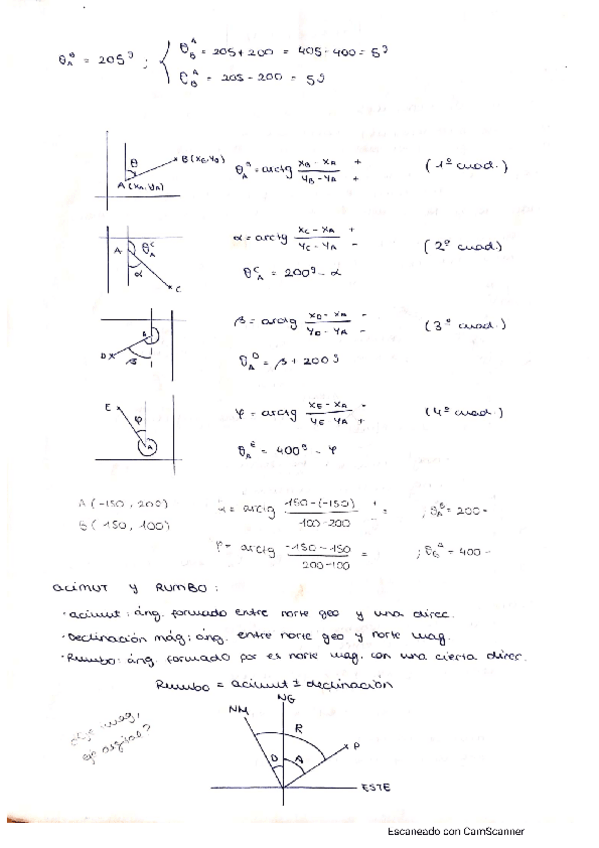 θ_A^B = 205^g ; { θ_B^A = 205 + 200 = 405 - 400 = 5^g
θ_B^A = 205 - 200 = 5^g
θ
B (X_B, Y_B)
A (X_A, Y_A)
θ_A^B = arctg (X_B - X_A)/(Y_B - Y_A) + + (1º cuad.)
A θ_A^C α C
α = arctg (X_C - X_A)/(Y_C - Y_A) + - (2º cuad.)
θ_A^C = 200^g - α
A D β
β = arctg (X_D - X_A)/(Y_D - Y_A) - - (3º cuad.)
θ_A^D = β + 200^g
E φ A
φ = arctg (X_E - X_A)/(Y_E - Y_A) - + (4º cuad.)
θ_A^E = 400^g - φ
A (-150, 200)
α = arctg (150 - (-150))/(100 - 200) + - = ; θ_A^B = 200 -
B (150, 100)
φ = arctg (-150 - 150)/(200 - 100) = ; θ_B^A = 400 -
acimut y RUMBO :
· acimut : áng. formado entre norte geo y una direc.
· Declinación mág : áng. entre norte geo y norte mag.
· Rumbo : áng. formado por es norte mag. con una cierta direc.
Rumbo = acimut ± declinación
NG
NM
R
P
D A
ESTE
Escaneado con CamScanner